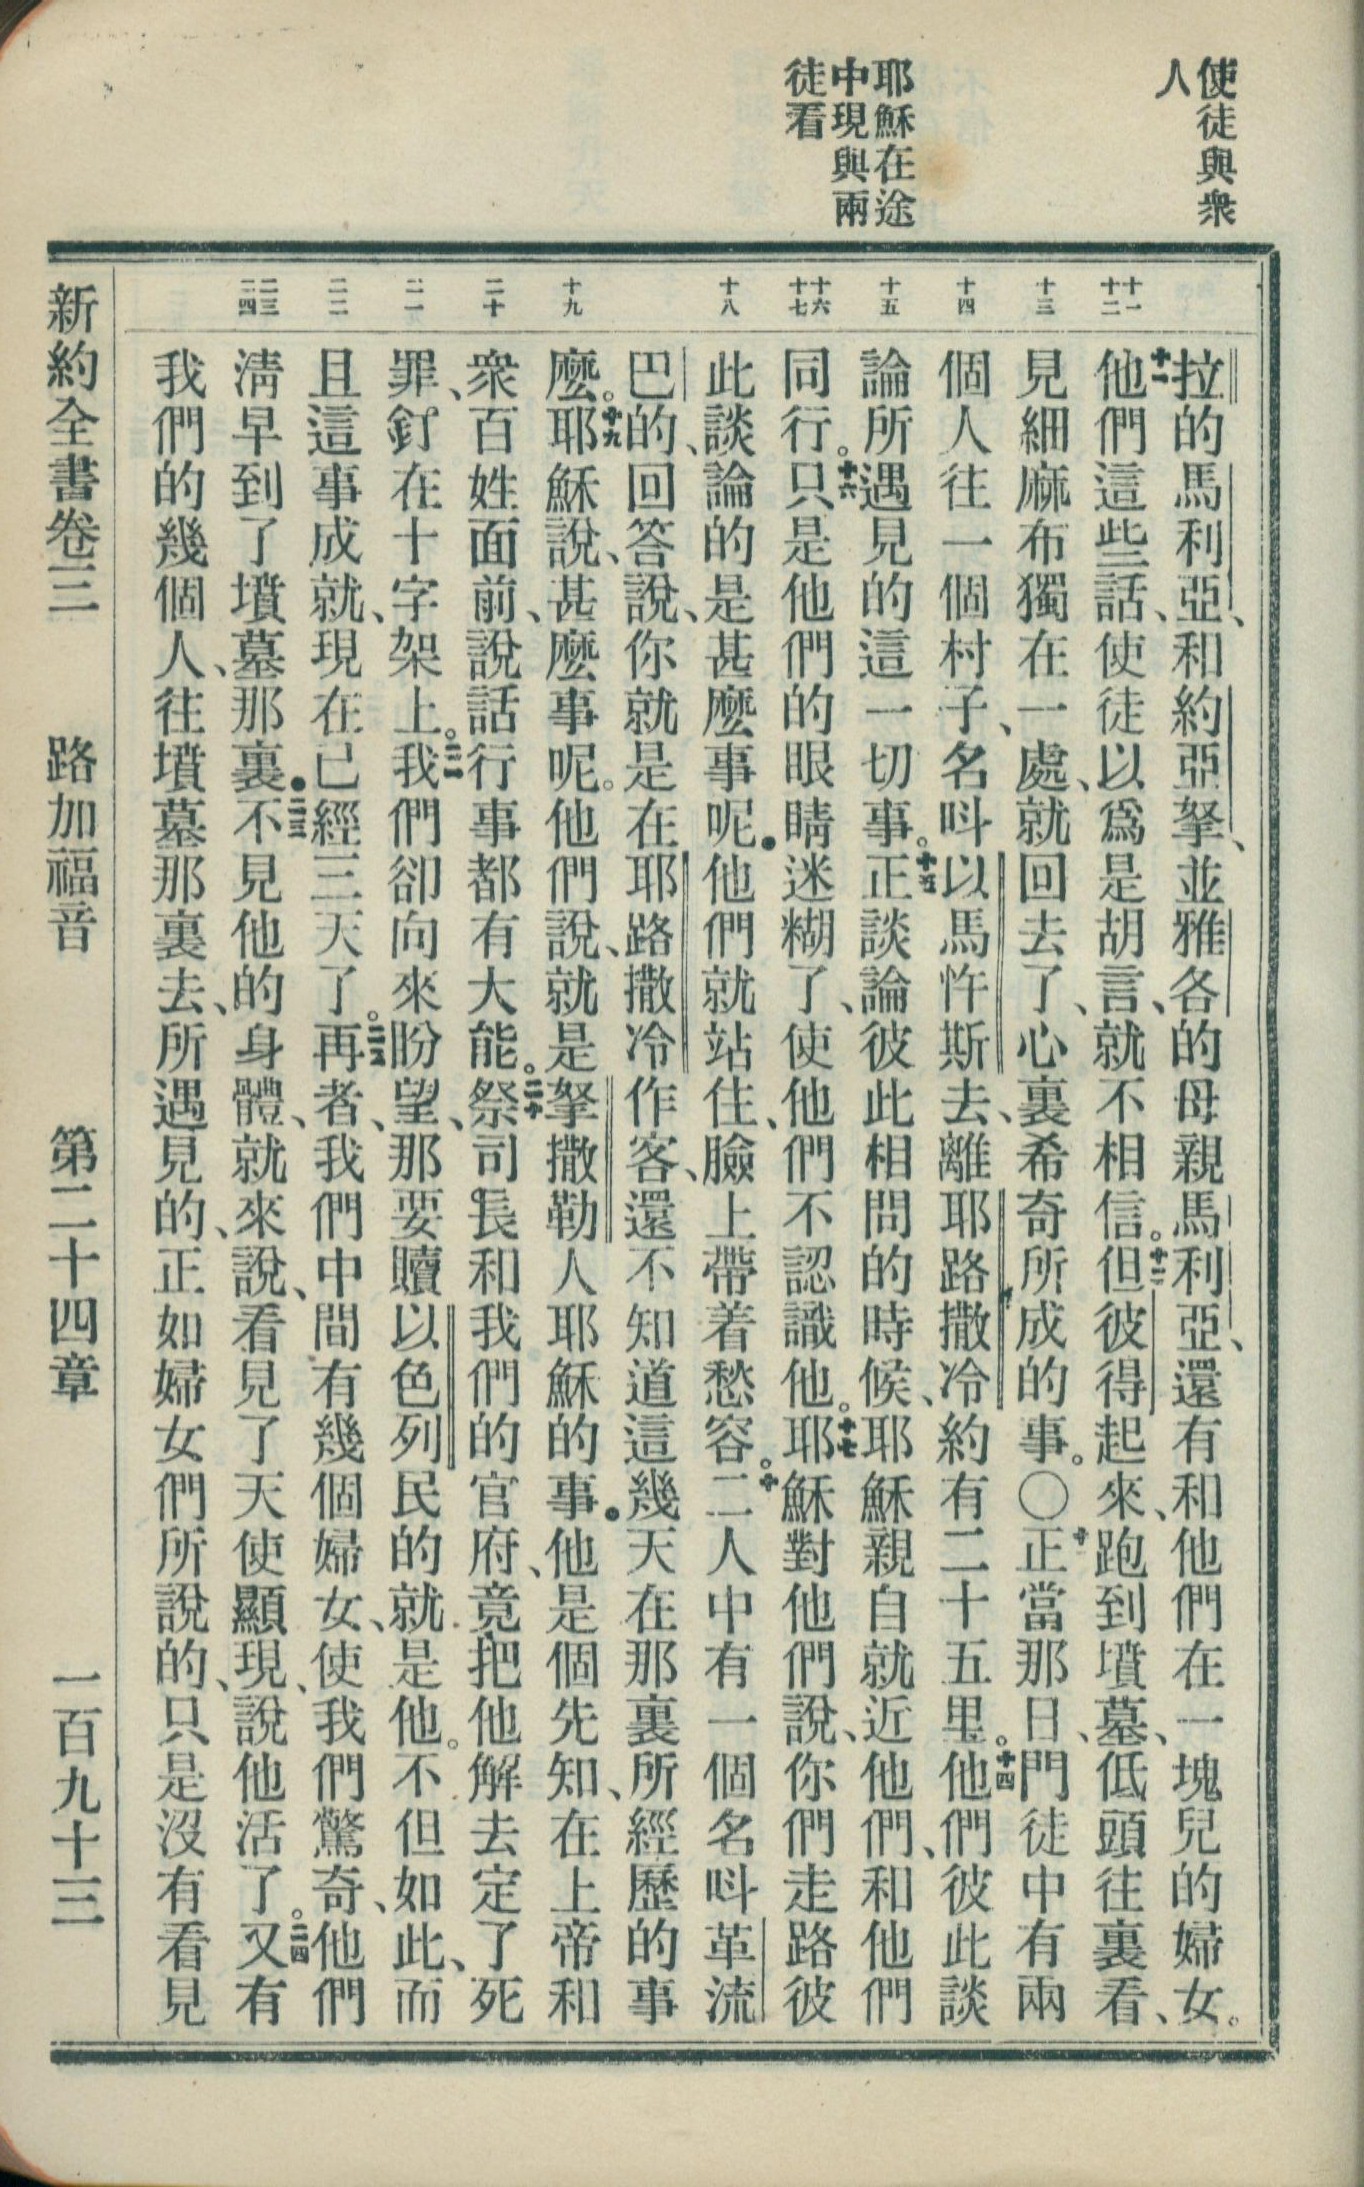 使徒與衆
人
耶穌在途
中現與兩
徒看
十一
十二
十三
十四
十五
十六
十七
十八
十九
二十
二一
二二
二三
二四
拉的馬利亞、和約亞拏、並雅各的母親馬利亞、還有和他們在一塊兒的婦女。
十一他們這些話、使徒以爲是胡言、就不相信。十二但彼得起來、跑到墳墓、低頭往裏看、
見細麻布獨在一處、就回去了、心裏希奇所成的事。〇十三正當那日、門徒中有兩
個人往一個村子、名呌以馬忤斯去、離耶路撒冷約有二十五里。十四他們彼此談
論所遇見的這一切事。十五正談論彼此相問的時候、耶穌親自就近他們、和他們
同行。十六只是他們的眼睛迷糊了、使他們不認識他。十七耶穌對他們說、你們走路彼
此談論的是甚麼事呢.他們就站住、臉上帶着愁容。十八二人中有一個名呌革流
巴的、回答說、你就是在耶路撒冷作客、還不知道這幾天在那裏所經歷的事
麼。十九耶穌說、甚麼事呢。他們說、就是拏撒勒人耶穌的事.他是個先知、在上帝和
衆百姓面前、說話行事都有大能。二十祭司長和我們的官府、竟把他解去定了死
罪、釘在十字架上。二一我們卻向來盼望、那要贖以色列民的就是他。不但如此、而
且這事成就、現在已經三天了。二二再者、我們中間有幾個婦女、使我們驚奇、他們
淸早到了墳墓那裏.二三不見他的身體、就來說、看見了天使顯現、說他活了。二四又有
我們的幾個人、往墳墓那裏去、所遇見的、正如婦女們所說的、只是沒有看見
新約全書卷三　路加福音　第二十四章　一百九十三